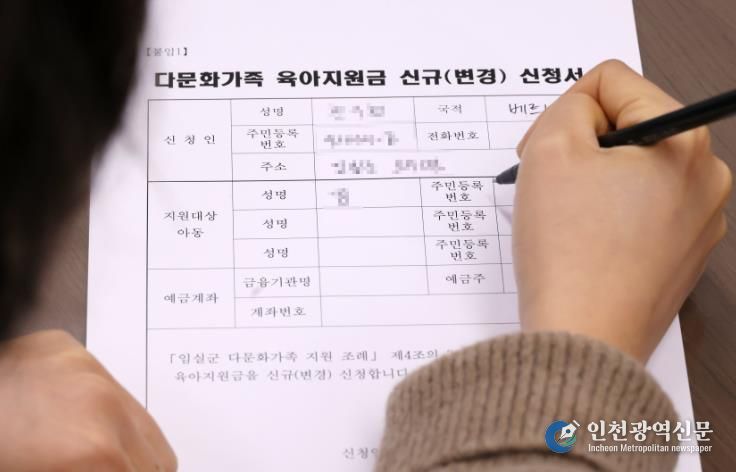 [붙임1]
다문화가족 육아지원금 신규(변경) 신청서
신청인 성명 국적
주민등록번호 전화번호
주소
지원대상 아동 성명 주민등록번호
성명 주민등록번호
성명 주민등록번호
예금계좌 금융기관명 예금주
계좌번호
「임실군 다문화가족 지원 조례」 제4조의
육아지원금을 신규(변경) 신청합니다
신청인
인천광역신문
Incheon Metropolitan newspaper